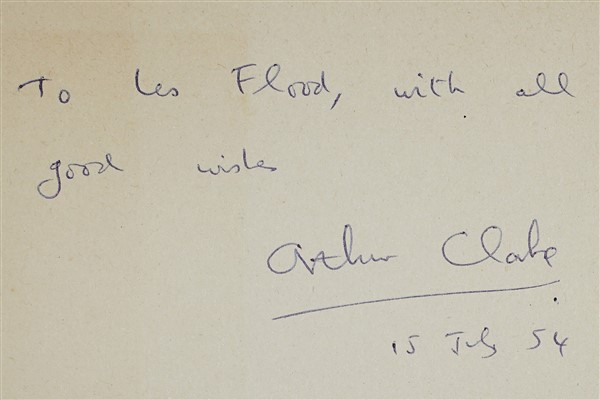 To Les Flood, with all
good wishes
Arthur Clarke
15 July 54